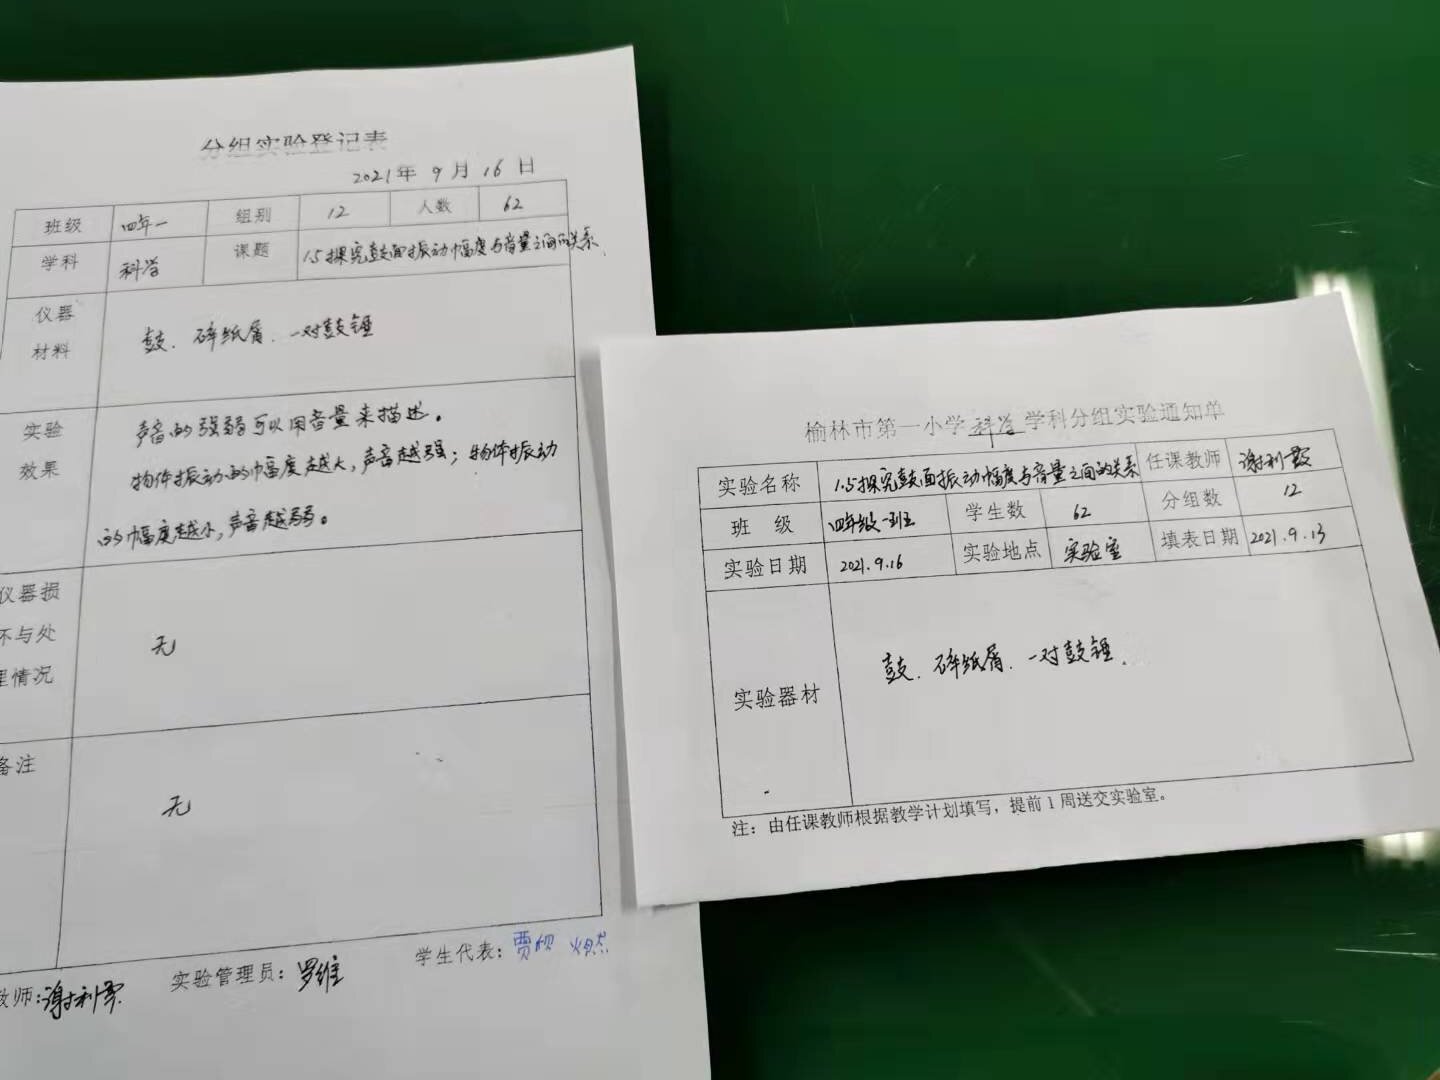 分组实验登记表
2021年 9 月 16 日
班级 四年一 组别 12 人数 62
学科 科学 课题 1.5探究鼓面振动幅度与音量之间的关系
仪器
材料
鼓、碎纸屑、一对鼓锤
实验
效果
声音的强弱可以用音量来描述。
物体振动的幅度越大,声音越强;物体振动
的幅度越小,声音越弱。
仪器损
坏与处
理情况
无
备注
无
教师:谢利 实验管理员:罗维 学生代表:贾
榆林市第一小学 科学 学科分组实验通知单
实验名称 1.5探究鼓面振动幅度与音量之间的关系 任课教师 谢利
班 级 四年级一班 学生数 62 分组数 12
实验日期 2021.9.16 实验地点 实验室 填表日期 2021.9.13
实验器材 鼓、碎纸屑、一对鼓锤.
注:由任课教师根据教学计划填写,提前1周送交实验室。